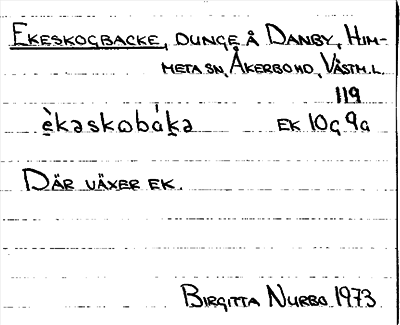 EKESKOGBACKE, DUNGE Å DANBY, HIM-
META SN, ÅKERBO HD, VÄSTM.L.
119
è̱kaskωbák̯a EK 10G 9a
DÄR VÄXER EK.
BIRGITTA NURBO 1973